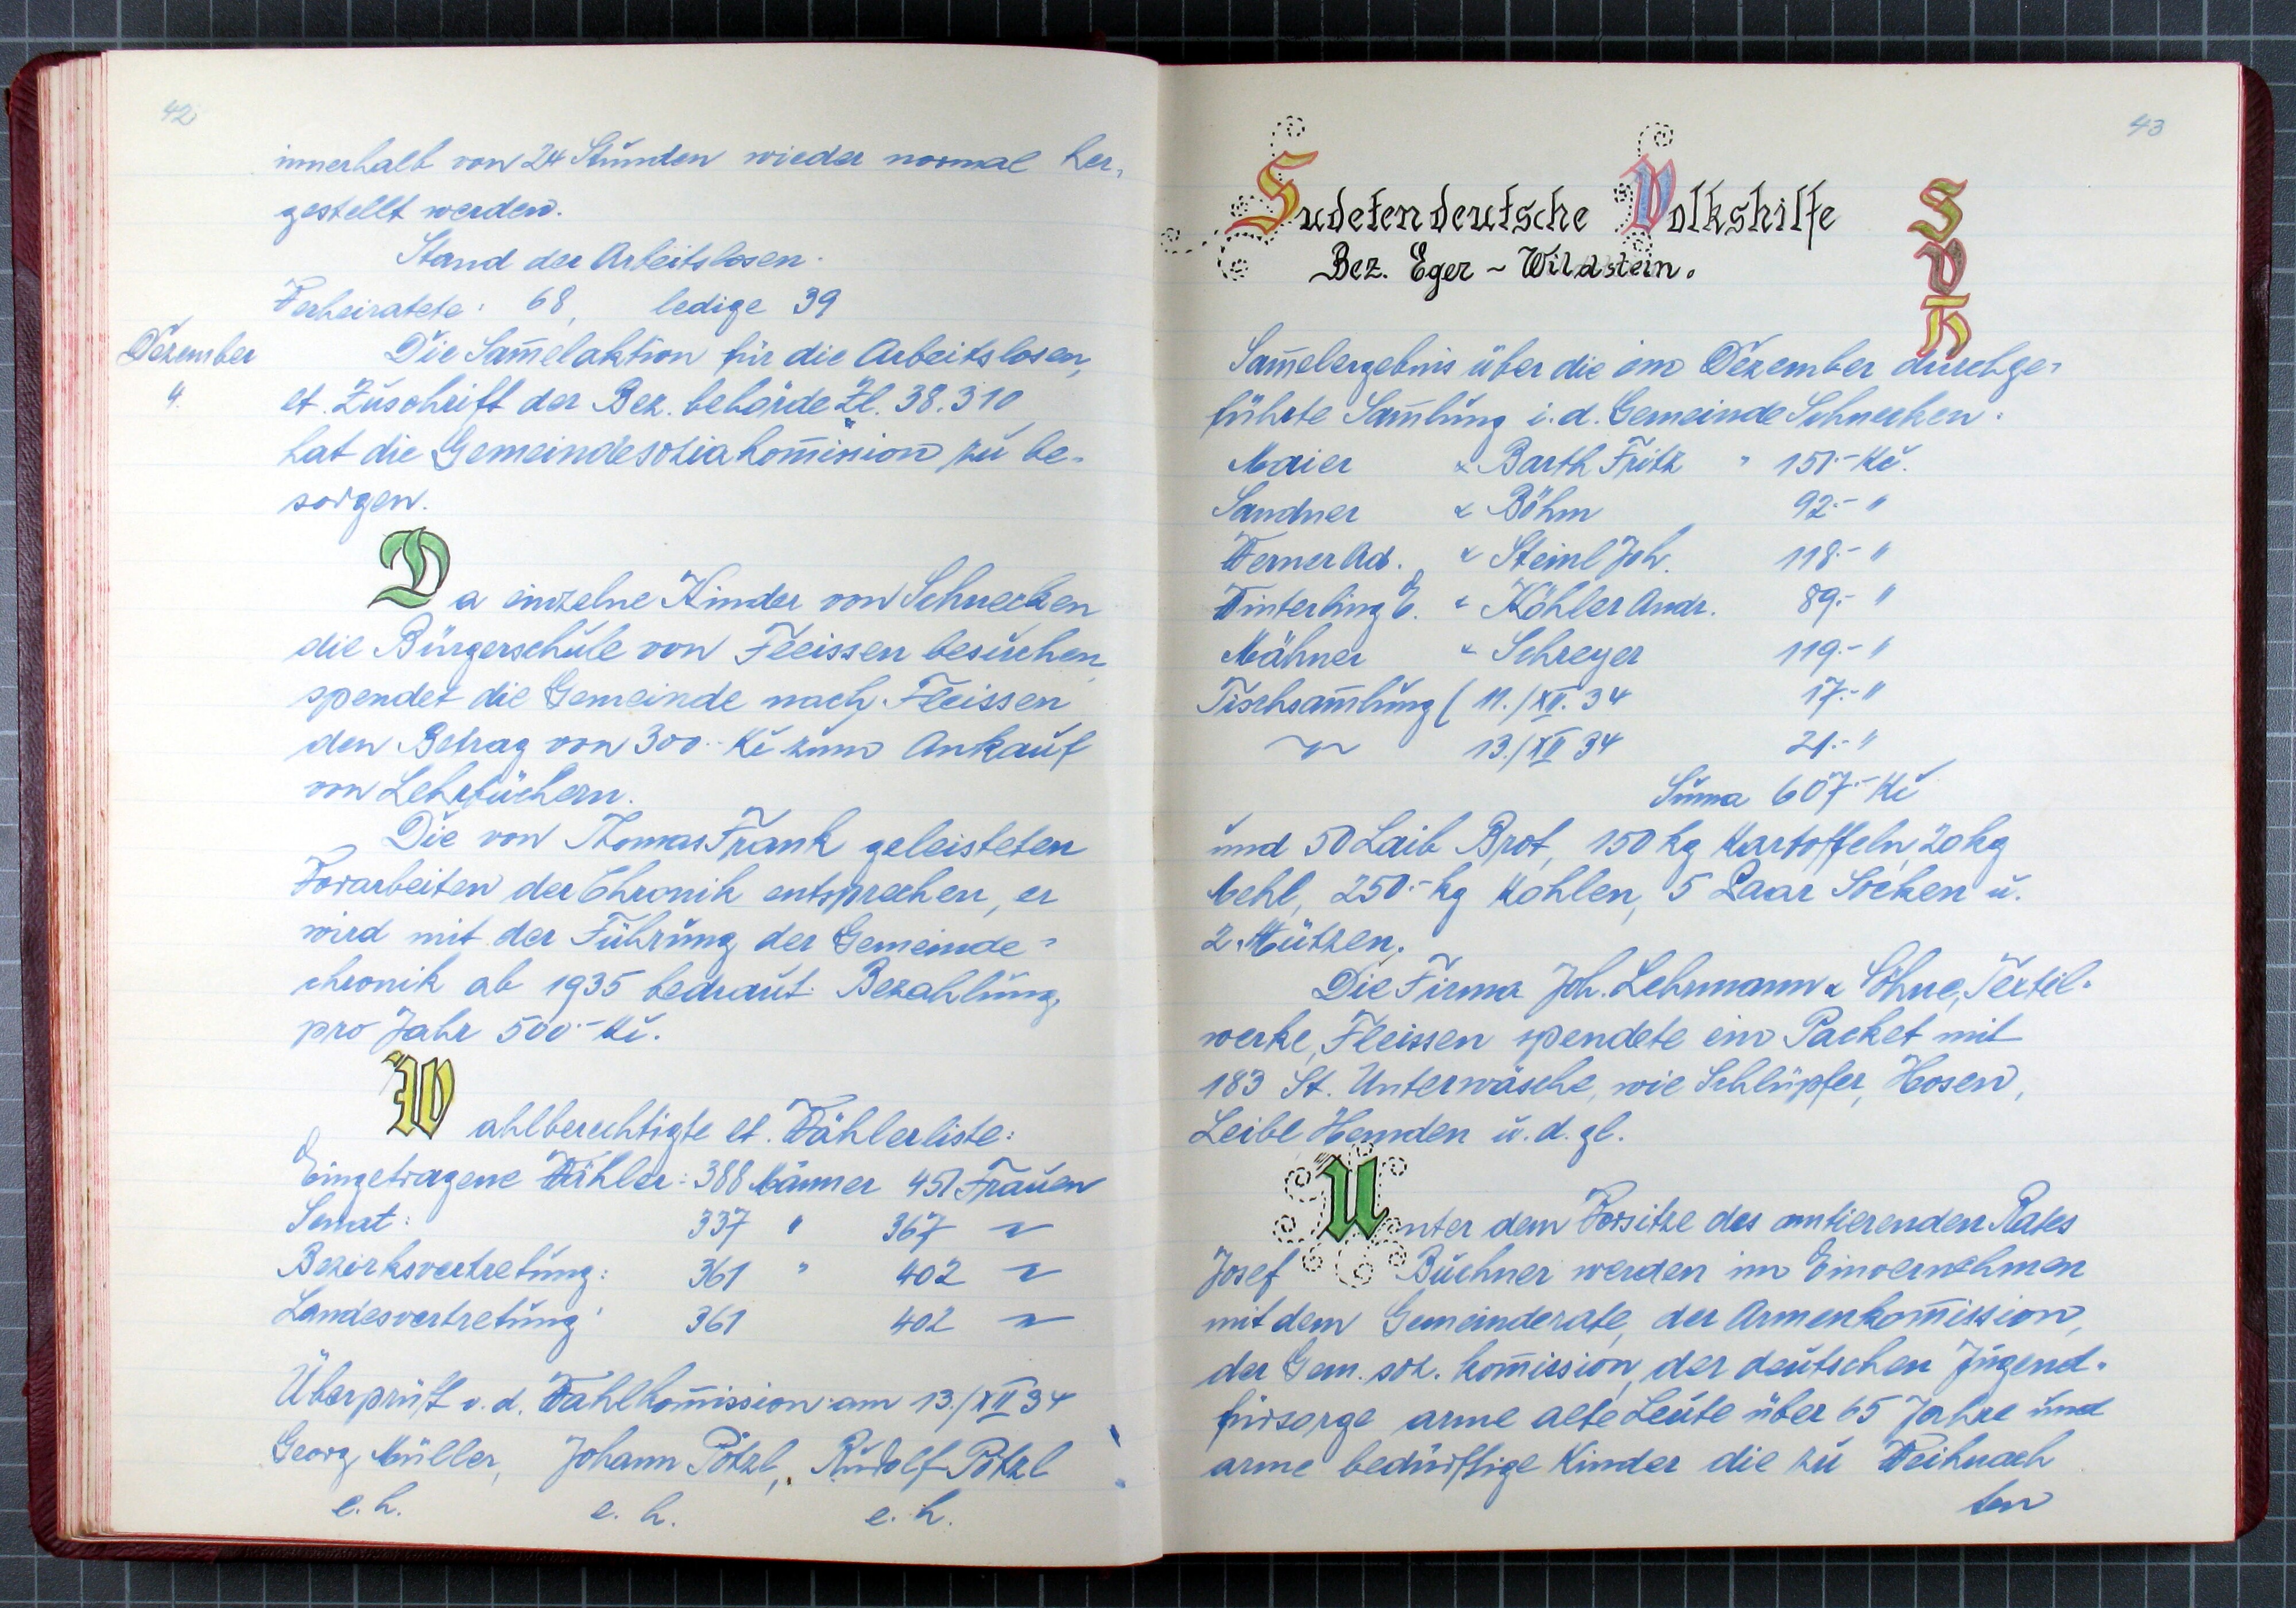 42
innerhalb von 24 Stunden wieder normal her-
gestellt werden.
Stand der Arbeitslosen.
Verheiratete: 68, ledige 39
Dezember
4.
Die Sam̄elaktion für die Arbeitslosen,
lt. Zuschrift der Bez. behörde Zl. 38.310
hat die Gemeindesoziakom̄ission zu be-
sorgen.
Da einzelne Kinder von Schnecken
die Bürgerschule von Fleissen besuchen,
spendet die Gemeinde nach Fleissen
den Betrag von 300.- Kč zum Ankauf
von Lehrbüchern.
Die von Thomas Frank geleisteten
Vorarbeiten der Chronik entsprechen, er
wird mit der Führung der Gemeinde-
chronik ab 1935 bedraut. Bezahlung
pro Jahr 500.- Kč.
Wahlberechtigte lt. Wählerliste:
Eingetragene Wähler: 388 Männer 451 Frauen
Senat: 337 " 367 "
Bezirksvertretung: 361 " 402 "
Landesvertretung: 361 402 "
Überprüft v. d. Wahlkom̄ission am 13./XII 34
Georg Müller, Johann Pötzl, Rudolf Pötzl
e. h. e. h. e. h.
43
Sudetendeutsche Volkshilfe
Bez. Eger - Wildstein.
S
V
H
Sam̄elergebnis über die im Dezember durchge-
führte Sam̄lung i. d. Gemeinde Schnecken.
Maier & Barth Fritz " 151.- Kč.
Sandner & Böhm 92.- "
Werner Ad. & Steinl Joh. 118.- "
Winterling E. & Köhler Andr. 89.- "
Mähner & Schreyer 119.- "
Tischsam̄lung ( 11./XII. 34 17.- "
" 13./XII 34 21.- "
Suma 607.- Kč
und 50 Laib Brot, 150 kg Kartoffeln, 20 kg
Mehl, 250.- kg Kohlen, 5 Paar Socken u.
2 Mützen.
Die Firma Joh. Lehrmann & Söhne, Textil-
werke, Fleissen spendete ein Packet mit
183 St. Unterwäsche, wie Schlüpfer, Hosen,
Leibl Hemden u. d. gl.
Unter dem Vorsitze des amtierenden Rates
Josef Buchner werden im Einvernehmen
mit dem Gemeinderate, der Armenkom̄ission,
der Gem. soz. kom̄ission, der deutschen Jugend-
fürsorge arme alte Leute über 65 Jahre und
arme bedürftige Kinder die zu Weihnach
ten